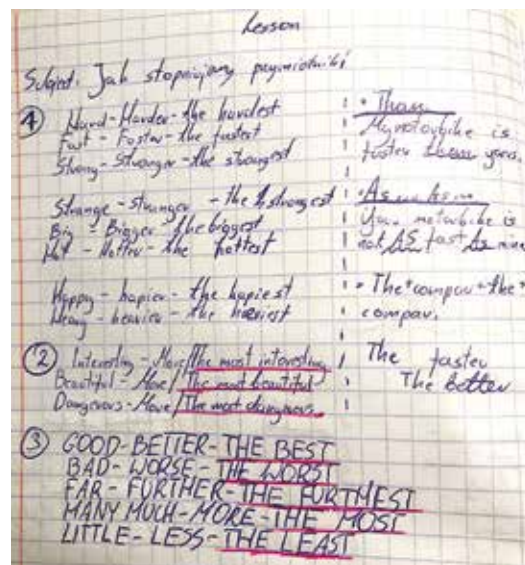 Lesson
Subject: Jak stopniujemy przymiotniki
1
Hard - Harder - the hardest
Fast - Faster - the fastest
Strong - Stronger - the strongest
Strange - stranger - the strangest
Big - Bigger - the biggest
Hot - Hotter - the hottest
Happy - hapier - the hapiest
Heavy - heavier - the heaviest
2 Interesting - More/The most interesting
Beautiful - More/The most beautiful
Dangerous - More/The most dangerous
3 GOOD - BETTER - THE BEST
BAD - WORSE - THE WORST
FAR - FURTHER - THE FURTHEST
MANY MUCH - MORE - THE MOST
LITTLE - LESS - THE LEAST
• Than
My motorbike is
faster than yours
• As ... As
Your motorbike is
not AS fast As mine
• The + compar + the +
compar.
The faster
The better